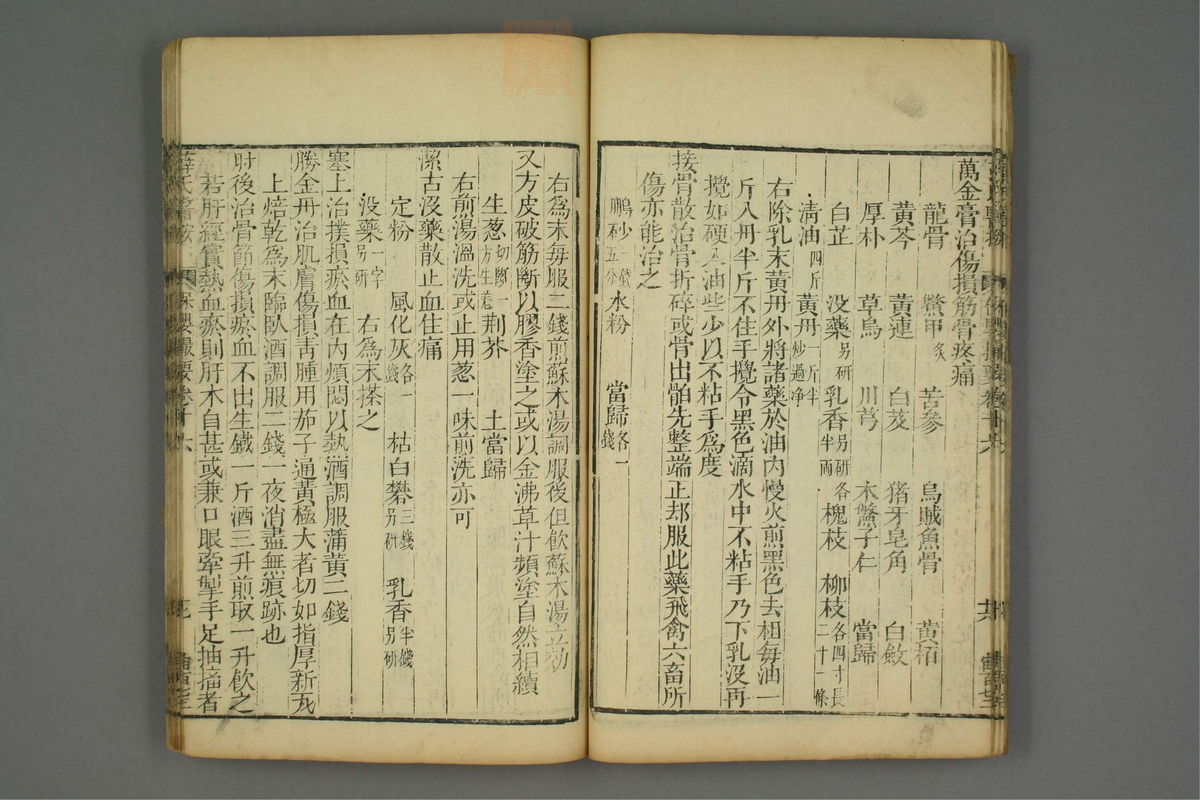 萬金膏治傷損筋骨疼痛
龍骨 鱉甲炙 苦參 烏賊魚骨 黃栢
黃芩 黃連 白芨 猪牙皂角 白斂
厚朴 草烏 川芎 木鱉子仁 當歸
白芷 没藥另研 乳香另研各半兩 槐枝 柳枝各四寸長二十一條
清油四斤 黃丹一斤半炒過净
右除乳末黃丹外將諸藥於油内慢火煎黑色去柤每油一
斤入丹半斤不住手攪令黑色滴水中不粘手乃下乳没再
攪如硬入油些少以不粘手爲度
接骨散治骨折碎或骨出骱先整端正却服此藥飛禽六畜所
傷亦能治之
鵬砂一錢五分 水粉 當歸各一錢
右爲末每服二錢煎蘇木湯調服後但飲蘇木湯立効
又方皮破筋斷以膠香塗之或以金沸草汁頻塗自然相續
生葱切斷一方生薑 荆芥 土當歸
右煎湯溫洗或止用葱一味煎洗亦可
潔古没藥散止血住痛
定粉 風化灰各一錢 枯白礬三錢另研 乳香半錢另研
没藥一字另研 右爲末摻之
塞上治撲損瘀血在内煩悶以熱酒調服蒲黃二錢
勝金丹治肌膚傷損青腫用茄子通黃極大者切如指厚新瓦
上焙乾爲末臨臥酒調服二錢一夜消盡無痕跡也
肘後治骨節傷損瘀血不出生鐵一斤酒三升煎取一升飲之
若肝經實熱血瘀則肝木自甚或兼口眼牽掣手足抽搐者
薛氏醫按 保嬰撮要卷十六